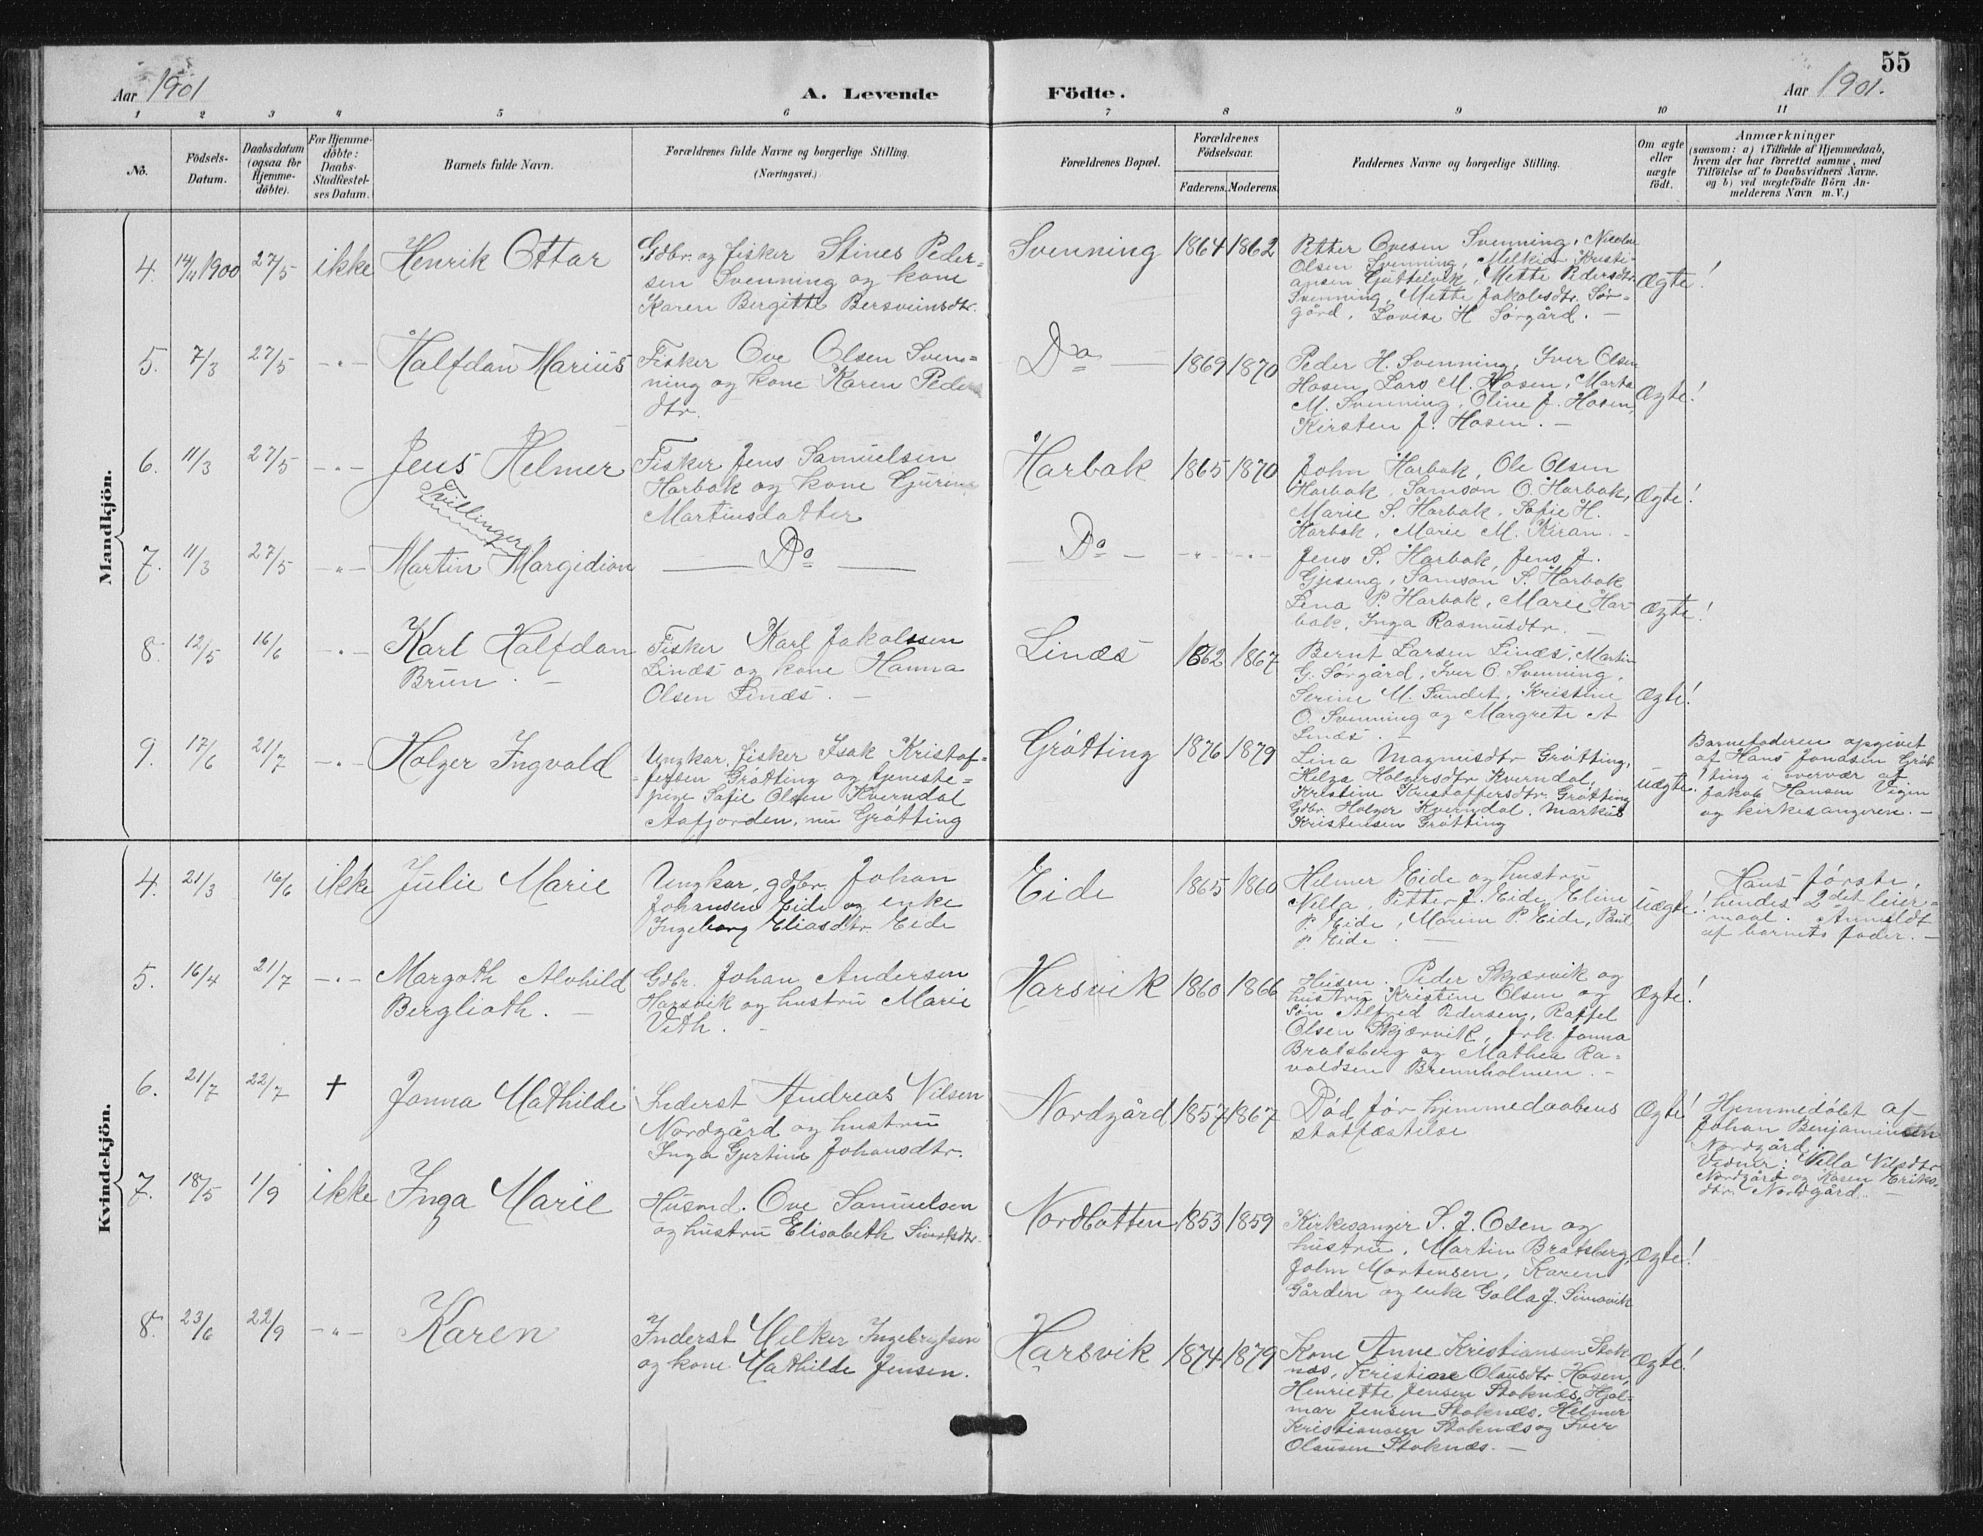 55
Aar 1901
A. Levende Födte.
Aar 1901.
1 2 3 4 5 6 7 8 9 10 11
No.
Födsels-
Datum.
Daabsdatum
(ogsaa for
Hjemme-
döbte).
For Hjemme-
döbte:
Daabs-
Stadfæstel-
ses Datum.
Barnets fulde Navn.
Forældrenes fulde Navne og borgerlige Stilling.
(Næringsvei.)
Forældrenes Bopæl.
Forældrenes
Födselsaar.
Faderens. Moderens.
Faddernes Navne og borgerlige Stilling.
Om ægte
eller
uægte
födt.
Anmærkninger
(saasom: a) i Tilfælde af Hjemmedaab,
hvem der har forrettet samme, med
Tilföielse af to Daabsvidners Navne.
og b) ved uægtefödte Börn An-
melderens Navn m. V.)
Mandkjön.
4. 14/11 1900 27/5 ikke Henrik Ottar
Gdbr. og fisker Stines Peder-
sen Svenning og kone
Karen Bergitte Bersveinsdtr.
Svenning 1864 1862
Petter Ovesen Svenning, Nicolai
Olsen Svenning, Melkior Kristi-
ansen Gjuttelvik, Mette Pedersdtr.
Svenning, Mette Jakobsdtr. Sør-
gård, Lovise H. Sørgård. —
Ægte!
5. 7/3 27/5 -"- Halfdan Marius
Fisker Ove Olsen Sven-
ning og kone Karen Peders
dtr.
Do — 1869 1870
Peder H. Svenning, Iver Olsen
Hosen, Lars M. Hosen, Marta
M. Svenning, Oline J. Hosen,
Kirsten J. Hosen. —
Ægte!
6. 11/3 27/5 -"- Jens Helmer
Tvillinger
Fisker Jens Samuelsen
Harbak og kone Gjurine
Martinsdatter
Harbak 1865 1870
John Harbak, Ole Olsen
Harbak, Samson O. Harbak,
Marie S. Harbak, Sofie H.
Harbak, Marie M. Kiran. —
Ægte!
7. 11/3 27/5 -"- Martin Margidion
— Do —
— Do — -"- -"-
Jens S. Harbak, Jens J.
Gjesing, Samson S. Harbak
Lena P. Harbak, Marie Har-
bak, Inga Rasmusdtr. —
Ægte!
8. 12/5 16/6 -"- Karl Halfdan
Brun. —
Fisker Karl Jakobsen
Linæs og kone Hanna
Olsen Linæs. —
Linæs 1862 1867
Bernt Larsen Linæs, Martin
G. Sørgård, Iver O. Svenning,
Serine M. Sundet, Kristine
O. Svenning og Margrete A
Linæs. —
Ægte!
9. 17/6 21/7 -"- Holger Ingvald
Ungkar, fisker Isak Kristof-
fersen Grøtting og tjeneste-
pige Sofie Olsen Kverndal
Aafjorden, nu Grøtting
Grøtting 1876 1879
Lina Magnusdtr Grøtting,
Helga Holgersdtr Kverndal,
Kristine Kristoffersdtr. Grøtting
Gdbr. Holger Kverndal, Markus
Kristensen Grøtting
uægte!
Barnefaderen opgivet
af Hans Jonasen Grøt-
ting i overvær af
Jakob Hansen Vigen
og kirkesangeren. —
Kvindekjön.
4. 21/3 16/6 ikke Julie Marie
Ungkar, gdbr. Johan
Johansen Eide og enke
Ingeborg Eliasdtr. Eide
Eide 1865 1860
Helmer Eide og hustru
Nella, Petter J. Eide, Eline
P. Eide, Maren P. Eide, Paul
P. Eide. —
uægte!
Hans første,
hendes 2det leier-
maal. Anmeldt
af barnets fader. —
5. 16/4 21/7 -"- Margoth Alvhild
Berglioth. —
Gdbr. Johan Andersen
Harsvik og hustru Marie
Veth. —
Harsvik 1860 1866
Husm. Peder Skjærvik og
hustru Kristine Olsen og
Søn Alfred Pedersen, Raffel
Olsen Skjærvik, frk. Janna
Bratsberg og Mathea Ra-
valdsen Brennholmen. —
Ægte!
6. 21/7 22/7 † Janna Mathilde
Inderst Andreas Nilsen
Nordgård og hustru
Inga Gjertine Johansdtr.
Nordgård 1857 1867
Død før hjemmedaabens
statfæstelse
Ægte!
Hjemmedøbt af
Johan Benjaminsen
Nordgård.
Vidner: Nella Nilsdtr
Nordgård og Karen Eriks-
dtr. Nordgård. —
7. 18/5 1/9 ikke Inga Marie
Husmd. Ove Samuelsen
og hustru Elisabeth Sivertsdtr.
Nordbotten 1853 1859
Kirkesanger S. J. Osen og
hustru, Martin Bratsberg,
John Mortensen, Karen
Gården og enke Golla J. Simavik
Ægte!
8. 23/6 22/9 -"- Karen
Inderst Melker Ingebrigtsen
og kone Mathilde Jensen.
Harsvik 1874 1879
Kone Anne Kristiansen Stok-
næs, Kristine Olausdtr. Hosen,
Henriette Jensen Stoknæs, Hjal-
mar Jensen Stoknæs, Helmer
Kristiansen Stoknæs og Iver
Olausen Stoknæs. —
Ægte!